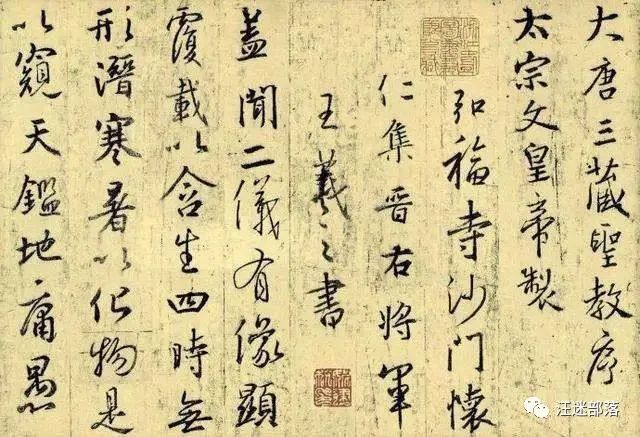 大唐三藏聖教序
太宗文皇帝製
弘福寺沙門懷
仁集晋右将軍
王羲之書
盖聞二儀有像顯
覆載以含生四時無
形潛寒暑以化物是
以窺天鑑地庸愚
汪迷部落